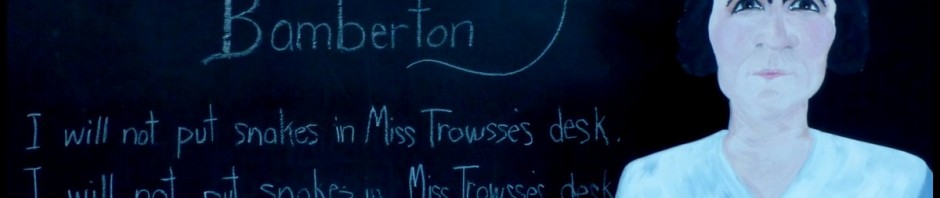 Bamberton
I will not put snakes in Miss Trowsse's desk.
I will not put snakes in Miss Trowsse's desk